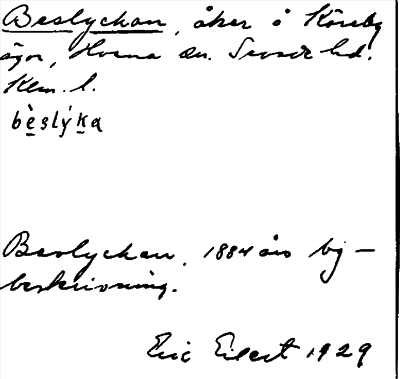 Beslyckan, åker å Köreby
ägor, Horna sn. Sevede hd.
Klm. l.
bèslýka
Beslyckan. 1884 års by-
beskrivning.
Eric Elgert 1929